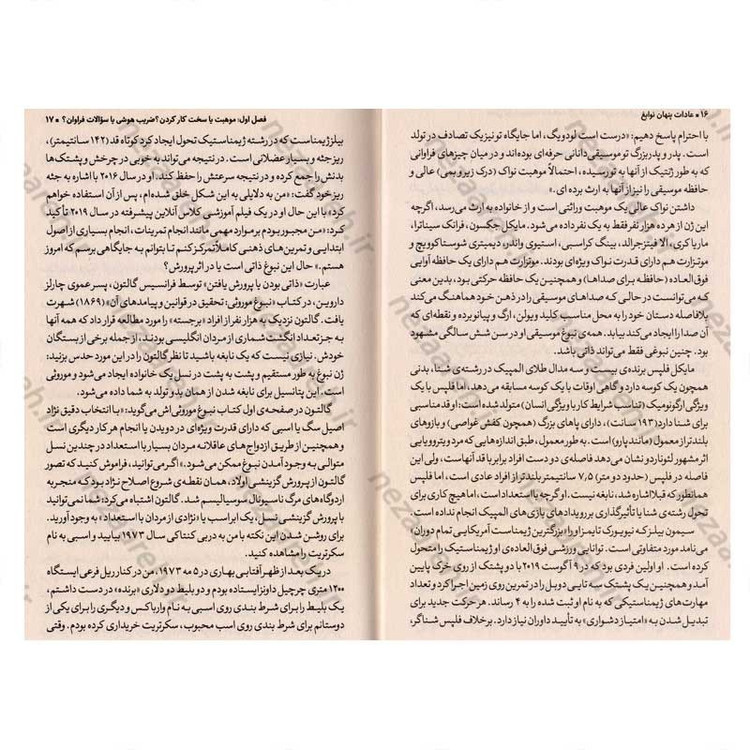 ۱۶ • عادات پنهان نوابغ
با احترام پاسخ دهیم: «درست است لودویگ، اما جایگاه تو نیز یک تصادف در تولد
است. پدر و پدربزرگ تو موسیقی دانانی حرفه‌ای بوده‌اند و در میان چیزهای فراوانی
که به طور ژنتیک از آنها به تو رسیده، احتمالاً موهبت نواک (درک زیروبمی) عالی و
حافظه موسیقی را نیز از آنها به ارث برده ای.»
داشتن نواک عالی یک موهبت وراثتی است و از خانواده به ارث می‌رسد، اگرچه
این ژن از هر ده هزار نفر فقط به یک نفر داده می‌شود. مایکل جکسون، فرانک سیناترا،
ماریا کری، الا فیتزجرالد، بینگ کراسبی، استیوی واندر، دیمیتری شوستاکوویچ و
موتزارت هم دارای قدرت نواک ویژه‌ای بودند. موتزارت هم دارای یک حافظه آوایی
فوق‌العاده (حافظه برای صداها) و همچنین یک حافظه حرکتی بود، بدین معنی
که می‌توانست در حالی که صداهای موسیقی را در ذهن خود هماهنگ می‌کند
بلافاصله دستان خود را به محل مناسب کلید ویولن، ارگ و پیانو برده و نقطه‌ای که
آن صدا را ایجاد می‌کند بیابد. همه‌ی نبوغ موسیقی او در سن شش سالگی مشهود
بود. چنین نبوغی فقط می‌تواند ذاتی باشد.
مایکل فلپس برنده‌ی بیست و سه مدال طلای المپیک در رشته‌ی شنا، بدنی
همچون یک کوسه دارد و گاهی اوقات با یک کوسه مسابقه می‌دهد. اما فلپس با یک
ویژگی ارگونومیک (تناسب شرایط کار با ویژگی انسان) متولد شده است: او قد مناسبی
برای شنا دارد (۱۹۳ سانت)، دارای پاهای بزرگ (همچون کفش غواصی) و بازوهای
بلندتر از معمول (مانند پارو) است. به طور معمول، طبق اندازه‌هایی که مرد ویتروویایی
اثر مشهور لئوناردو نشان می‌دهد فاصله‌ی دو دست افراد برابر با قد آنهاست، ولی این
فاصله در فلپس (حدود دو متر) ۷٫۵ سانتیمتر بلندتر از افراد عادی است. اما فلپس
همانطور که قبلا اشاره شد، نابغه نیست. او گرچه با استعداد است، اما هیچ کاری برای
تحول رشته‌ی شنا یا تأثیرگذاری بر رویدادهای بازی‌های المپیک انجام نداده است.
سیمون بیلز که نیویورک تایمز او را «بزرگترین ژیمناست آمریکایی تمام دوران»
می‌نامد مورد متفاوتی است. توانایی ورزشی فوق‌العاده‌ی او ژیمناستیک را متحول
کرده است. او اولین فردی بود که در ۹ آگوست ۲۰۱۹ با دو پشتک از روی خرک پایین
آمد و همچنین یک پشتک سه تایی دوبل را در تمرین روی زمین اجرا کرد و تعداد
مهارت‌های ژیمناستیکی که به نام او ثبت شده را به ۴ رساند. هر حرکت جدید برای
تبدیل شدن به «امتیاز دشواری» به تأیید داوران نیاز دارد. برخلاف فلپس شناگر،
فصل اول: موهبت یا سخت کار کردن؟ ضریب هوشی یا سؤالات فراوان؟ • ۱۷
بیلز ژیمناست که در رشته ژیمناستیک تحول ایجاد کرد کوتاه قد (۱۴۲ سانتیمتر)،
ریز جثه و بسیار عضلانی است. در نتیجه می‌تواند به خوبی در چرخش و پشتک‌ها
بدنش را جمع کرده و در نتیجه سرعتش را حفظ کند. او در سال ۲۰۱۶ با اشاره به جثه
ریز خود گفت: «من به دلایلی به این شکل خلق شده‌ام، پس از آن استفاده خواهم
کرد» با این حال او در یک فیلم آموزشی کلاس آنلاین پیشرفته در سال ۲۰۱۹ تأکید
کرد: «من مجبور بودم بر موارد مهمی مانند انجام تمرینات، انجام بسیاری از اصول
ابتدایی و تمرین‌های ذهنی کاملاً تمرکز کنم تا بتوانم به جایگاهی برسم که امروز
هستم.» حال این نبوغ ذاتی است یا در اثر پرورش؟
عبارت «ذاتی بودن یا پرورش یافتن» توسط فرانسیس گالتون، پسرعموی چارلز
داروین، در کتاب «نبوغ موروثی: تحقیق در قوانین و پیامدهای آن» (۱۸۶۹) شهرت
یافت. گالتون نزدیک به هزار نفر از افراد «برجسته» را مورد مطالعه قرار داد که همه آنها
به جز تعداد انگشت شماری از مردان انگلیسی بودند، از جمله برخی از بستگان
خودش. نیازی نیست که یک نابغه باشید تا نظر گالتون را در این مورد حدس بزنید:
ژن نبوغ به طور مستقیم و پشت به پشت در نسل یک خانواده ایجاد می‌شود و موروثی
است. این پتانسیل برای نابغه شدن از همان بدو تولد به شما داده می‌شود.
گالتون در صفحه‌ی اول کتاب نبوغ موروثی‌اش می‌گوید: «با انتخاب دقیق نژاد
اصیل سگ یا اسبی که دارای قدرت ویژه‌ای در دویدن یا انجام هر کار دیگری است
و همچنین از طریق ازدواج‌های عاقلانه مردان بسیار با استعداد در چندین نسل
متوالی به وجود آمدن نبوغ ممکن می‌شود.» اگر می‌توانید، فراموش کنید که تصور
گالتون از پرورش گزینشی اولاد، همان نقطه‌ی شروع اصلاح نژاد بود که منجر به
اردوگاه‌های مرگ ناسیونال سوسیالیسم شد. گالتون اشتباه می‌کرد: شما نمی‌توانید
با پرورش گزینشی نسل، یک ابراسب یا «نژادی از مردان با استعداد» به وجود آورید.
برای روشن شدن این نکته با من به دربی کنتاکی سال ۱۹۷۳ بیایید و اسبی به نام
سکرتریت را مشاهده کنید.
در یک بعد از ظهر آفتابی بهاری در ۵ مه ۱۹۷۳، من در کنار ریل فرعی ایستگاه
۱۲۰۰ متری چرچیل داونز ایستاده بودم و دو بلیط دو دلاری «برنده» در دست داشتم،
یک بلیط را برای شرط بندی روی اسبی به نام وارباکس و دیگری را برای یکی از
دوستانم برای شرط بندی روی اسب محبوب، سکرتریت خریداری کرده بودم. وقتی